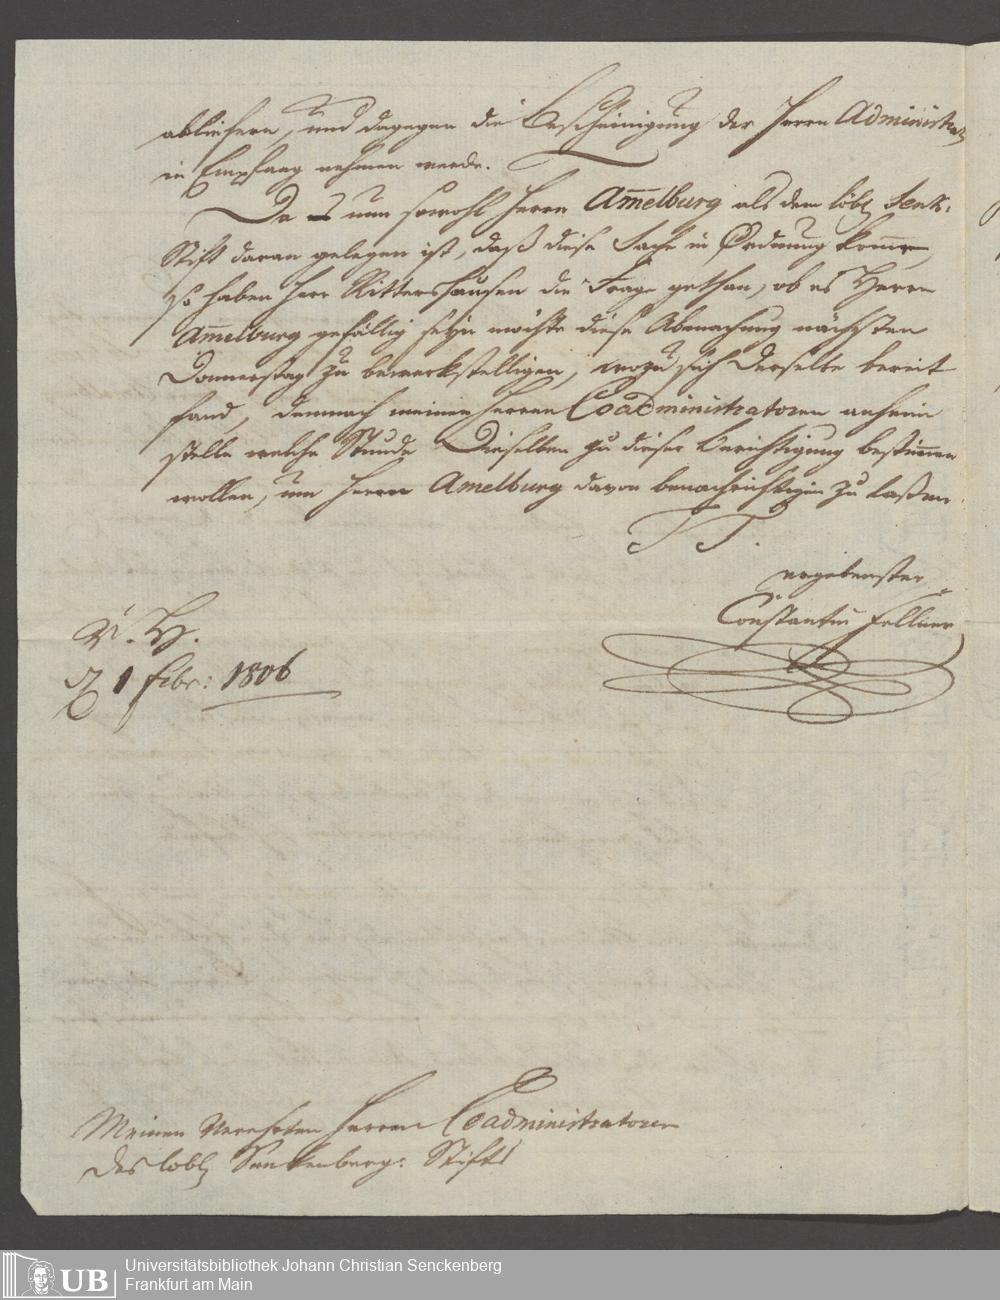 abliefern, und dagegen die Bescheinigung der Herrn Administrat:
in Empfang nehmen werde.
Da nun sowohl Herrn Am̅elburg als dem löbl Senk:
Stift daran gelegen ist, daß diese Sache in Ordnung kom̅e,
so haben Herr Rittershausen die Frage gethan, ob es Herrn
Am̅elburg gefällig seyn möchte diese Abmachung nächsten
Donnerstag zu bewerkstelligen, wozu sich Derselbe bereit
fand, demnach meinen Herren Coadministratoren anheim
stelle welche Stunde Dieselben zu dieser Berichtigung bestim̅en
wollen, um Herrn Amelburg davon benachrichtigen zu laßen.
T T.
ergebenster
Constantin Fellner
V. H.
1 Febr: 1806
Meinen Verehrten Herren Coadministratoren
des löbl Senkenberg: Stifts
UB
Universitätsbibliothek Johann Christian Senckenberg
Frankfurt am Main